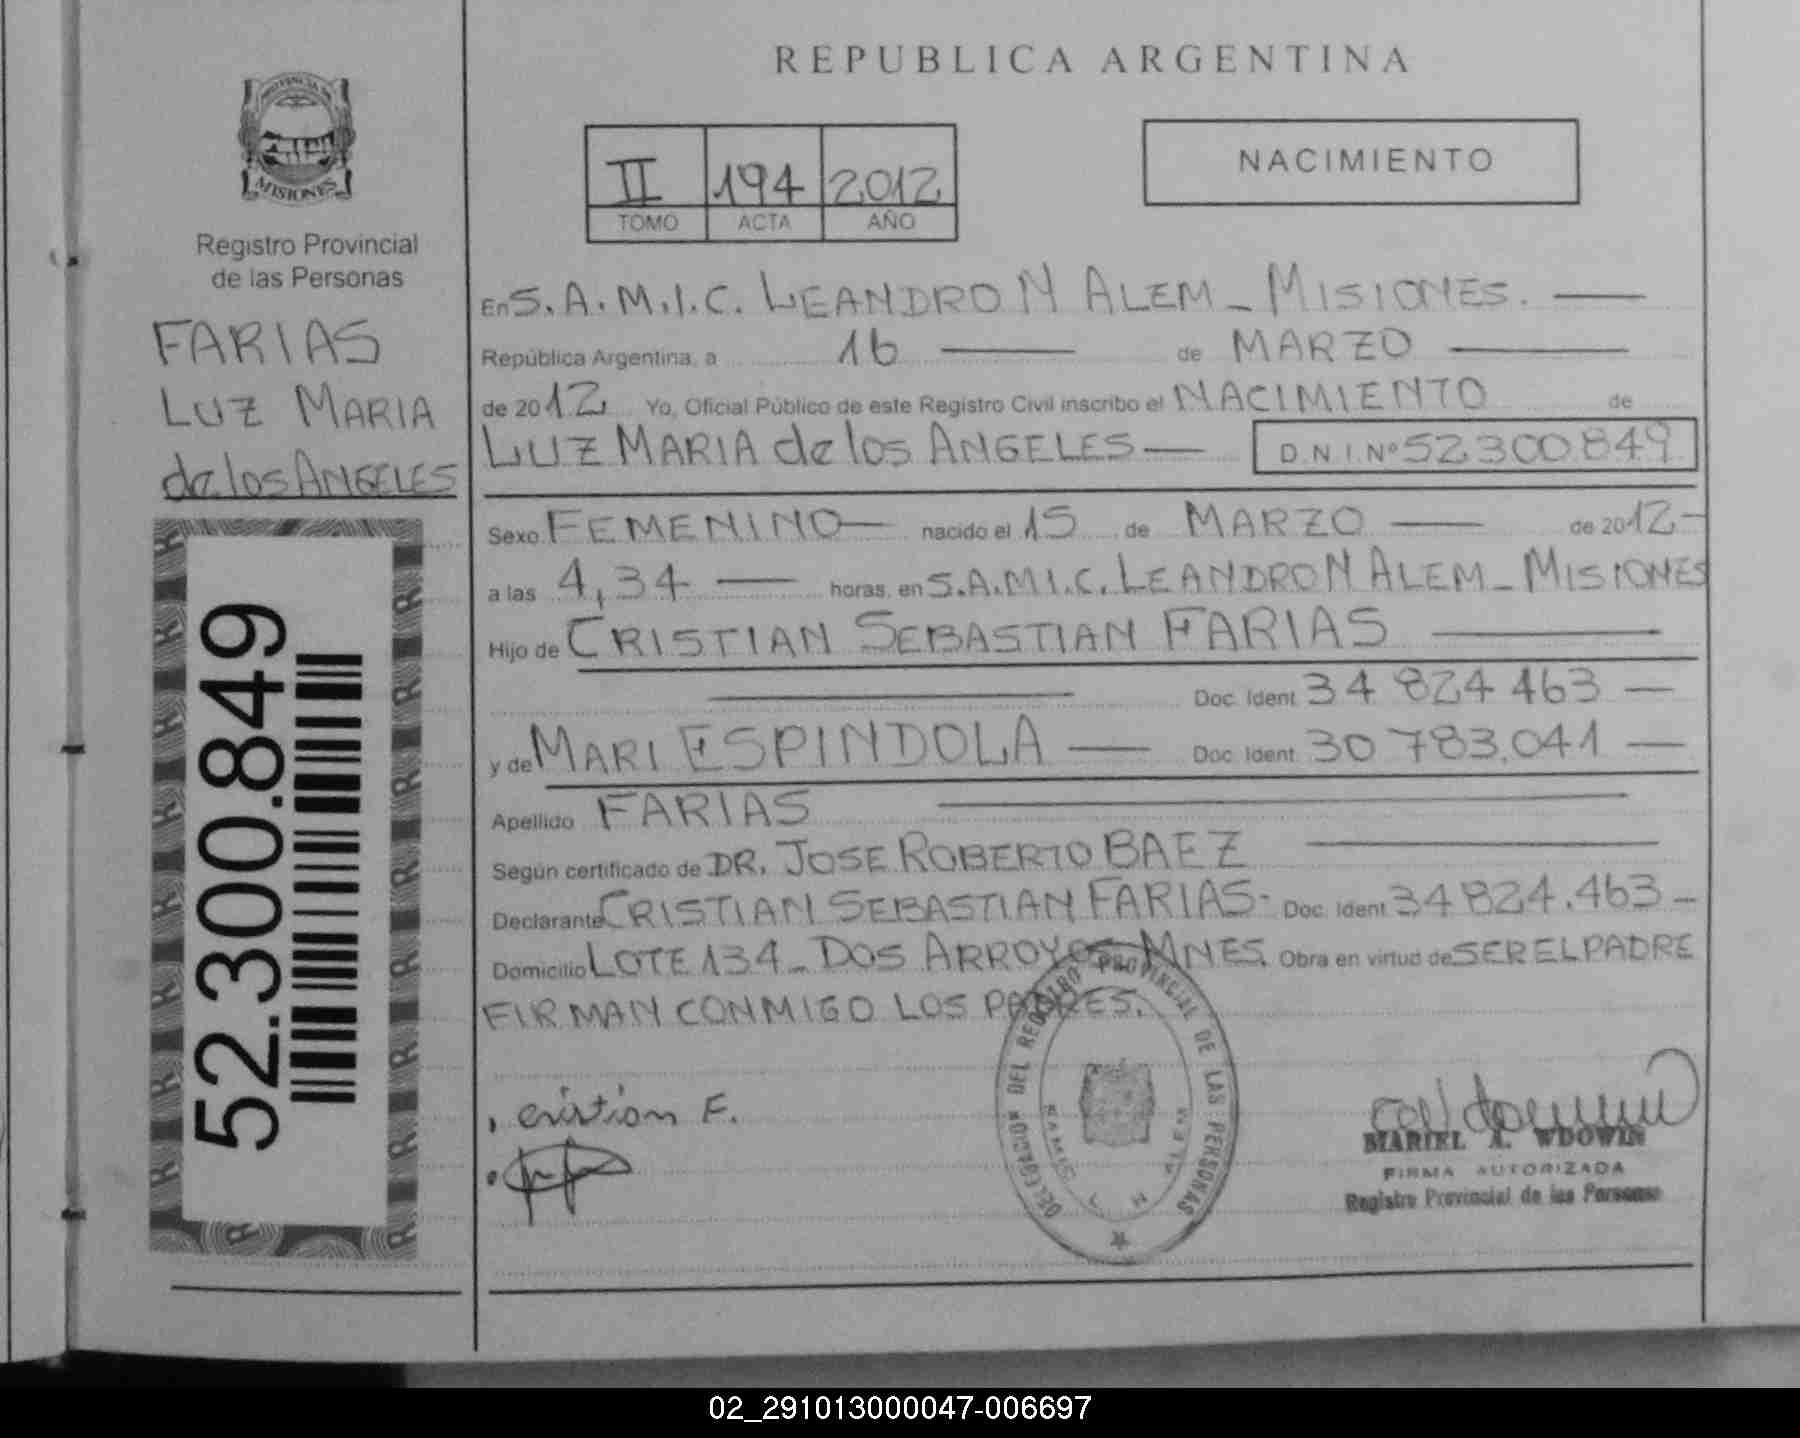 REPUBLICA ARGENTINA
PROVINCIA DE
MISIONES
Registro Provincial
de las Personas
FARIAS
LUZ MARIA
de los ANGELES
52.300.849
II 194 2012
TOMO ACTA AÑO
NACIMIENTO
En S.A.M.I.C. LEANDRO N ALEM - MISIONES.
República Argentina, a 16 de MARZO
de 2012 Yo, Oficial Público de este Registro Civil inscribo el NACIMIENTO de
LUZ MARIA de los ANGELES D.N.I.Nº 52300849
Sexo FEMENINO nacido el 15 de MARZO de 2012
a las 4,34 horas, en S.A.M.I.C. LEANDRO N ALEM - MISIONES
Hijo de CRISTIAN SEBASTIAN FARIAS
Doc. Ident. 34 824 463
y de MARI ESPINDOLA Doc. Ident. 30 783.041
Apellido FARIAS
Según certificado de DR. JOSE ROBERTO BAEZ
Declarante CRISTIAN SEBASTIAN FARIAS- Doc. Ident. 34 824.463
Domicilio LOTE 134 - DOS ARROYOS MNES. Obra en virtud de SER EL PADRE
FIRMAN CONMIGO LOS PADRES.
cristian F.
DELEGACION DEL REGISTRO PROVINCIAL DE LAS PERSONAS
N ALEM
MISIONES
MARIEL A. WDOWIN
FIRMA AUTORIZADA
Registro Provincial de las Personas
02_291013000047-006697